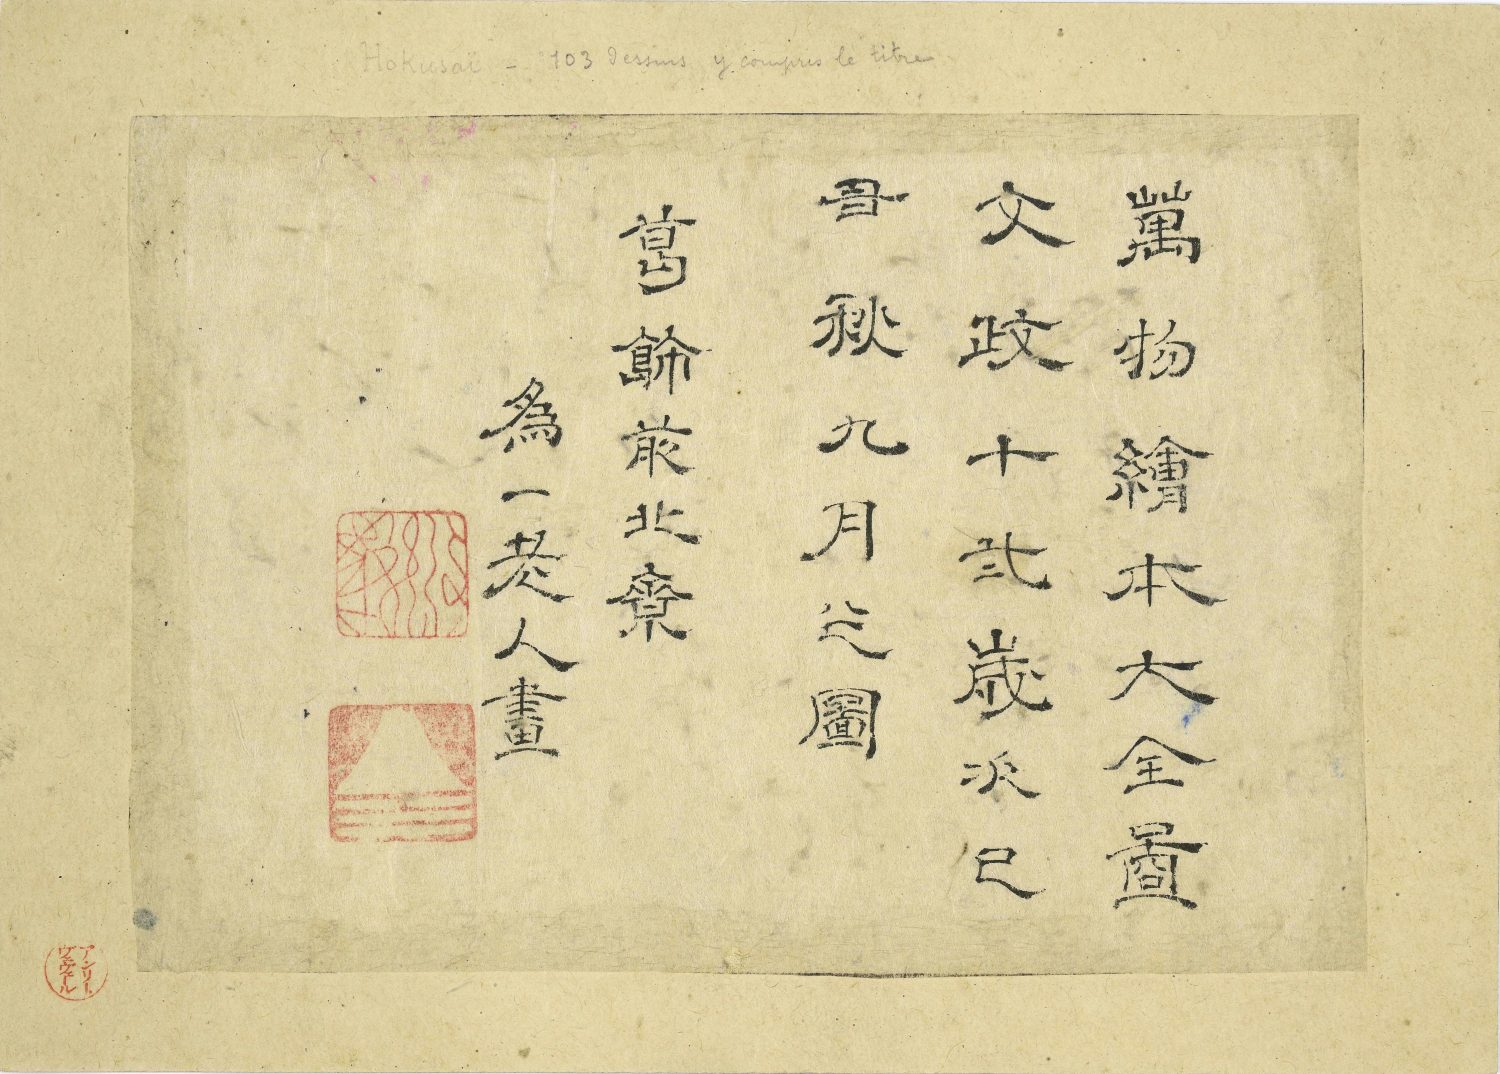 Hokusaï - 103 Dessins y compris le titre
萬物繪本大全圖
文政十弐歳次己
丑秋九月之圖
葛飾前北齋
為一老人畫
アンリー